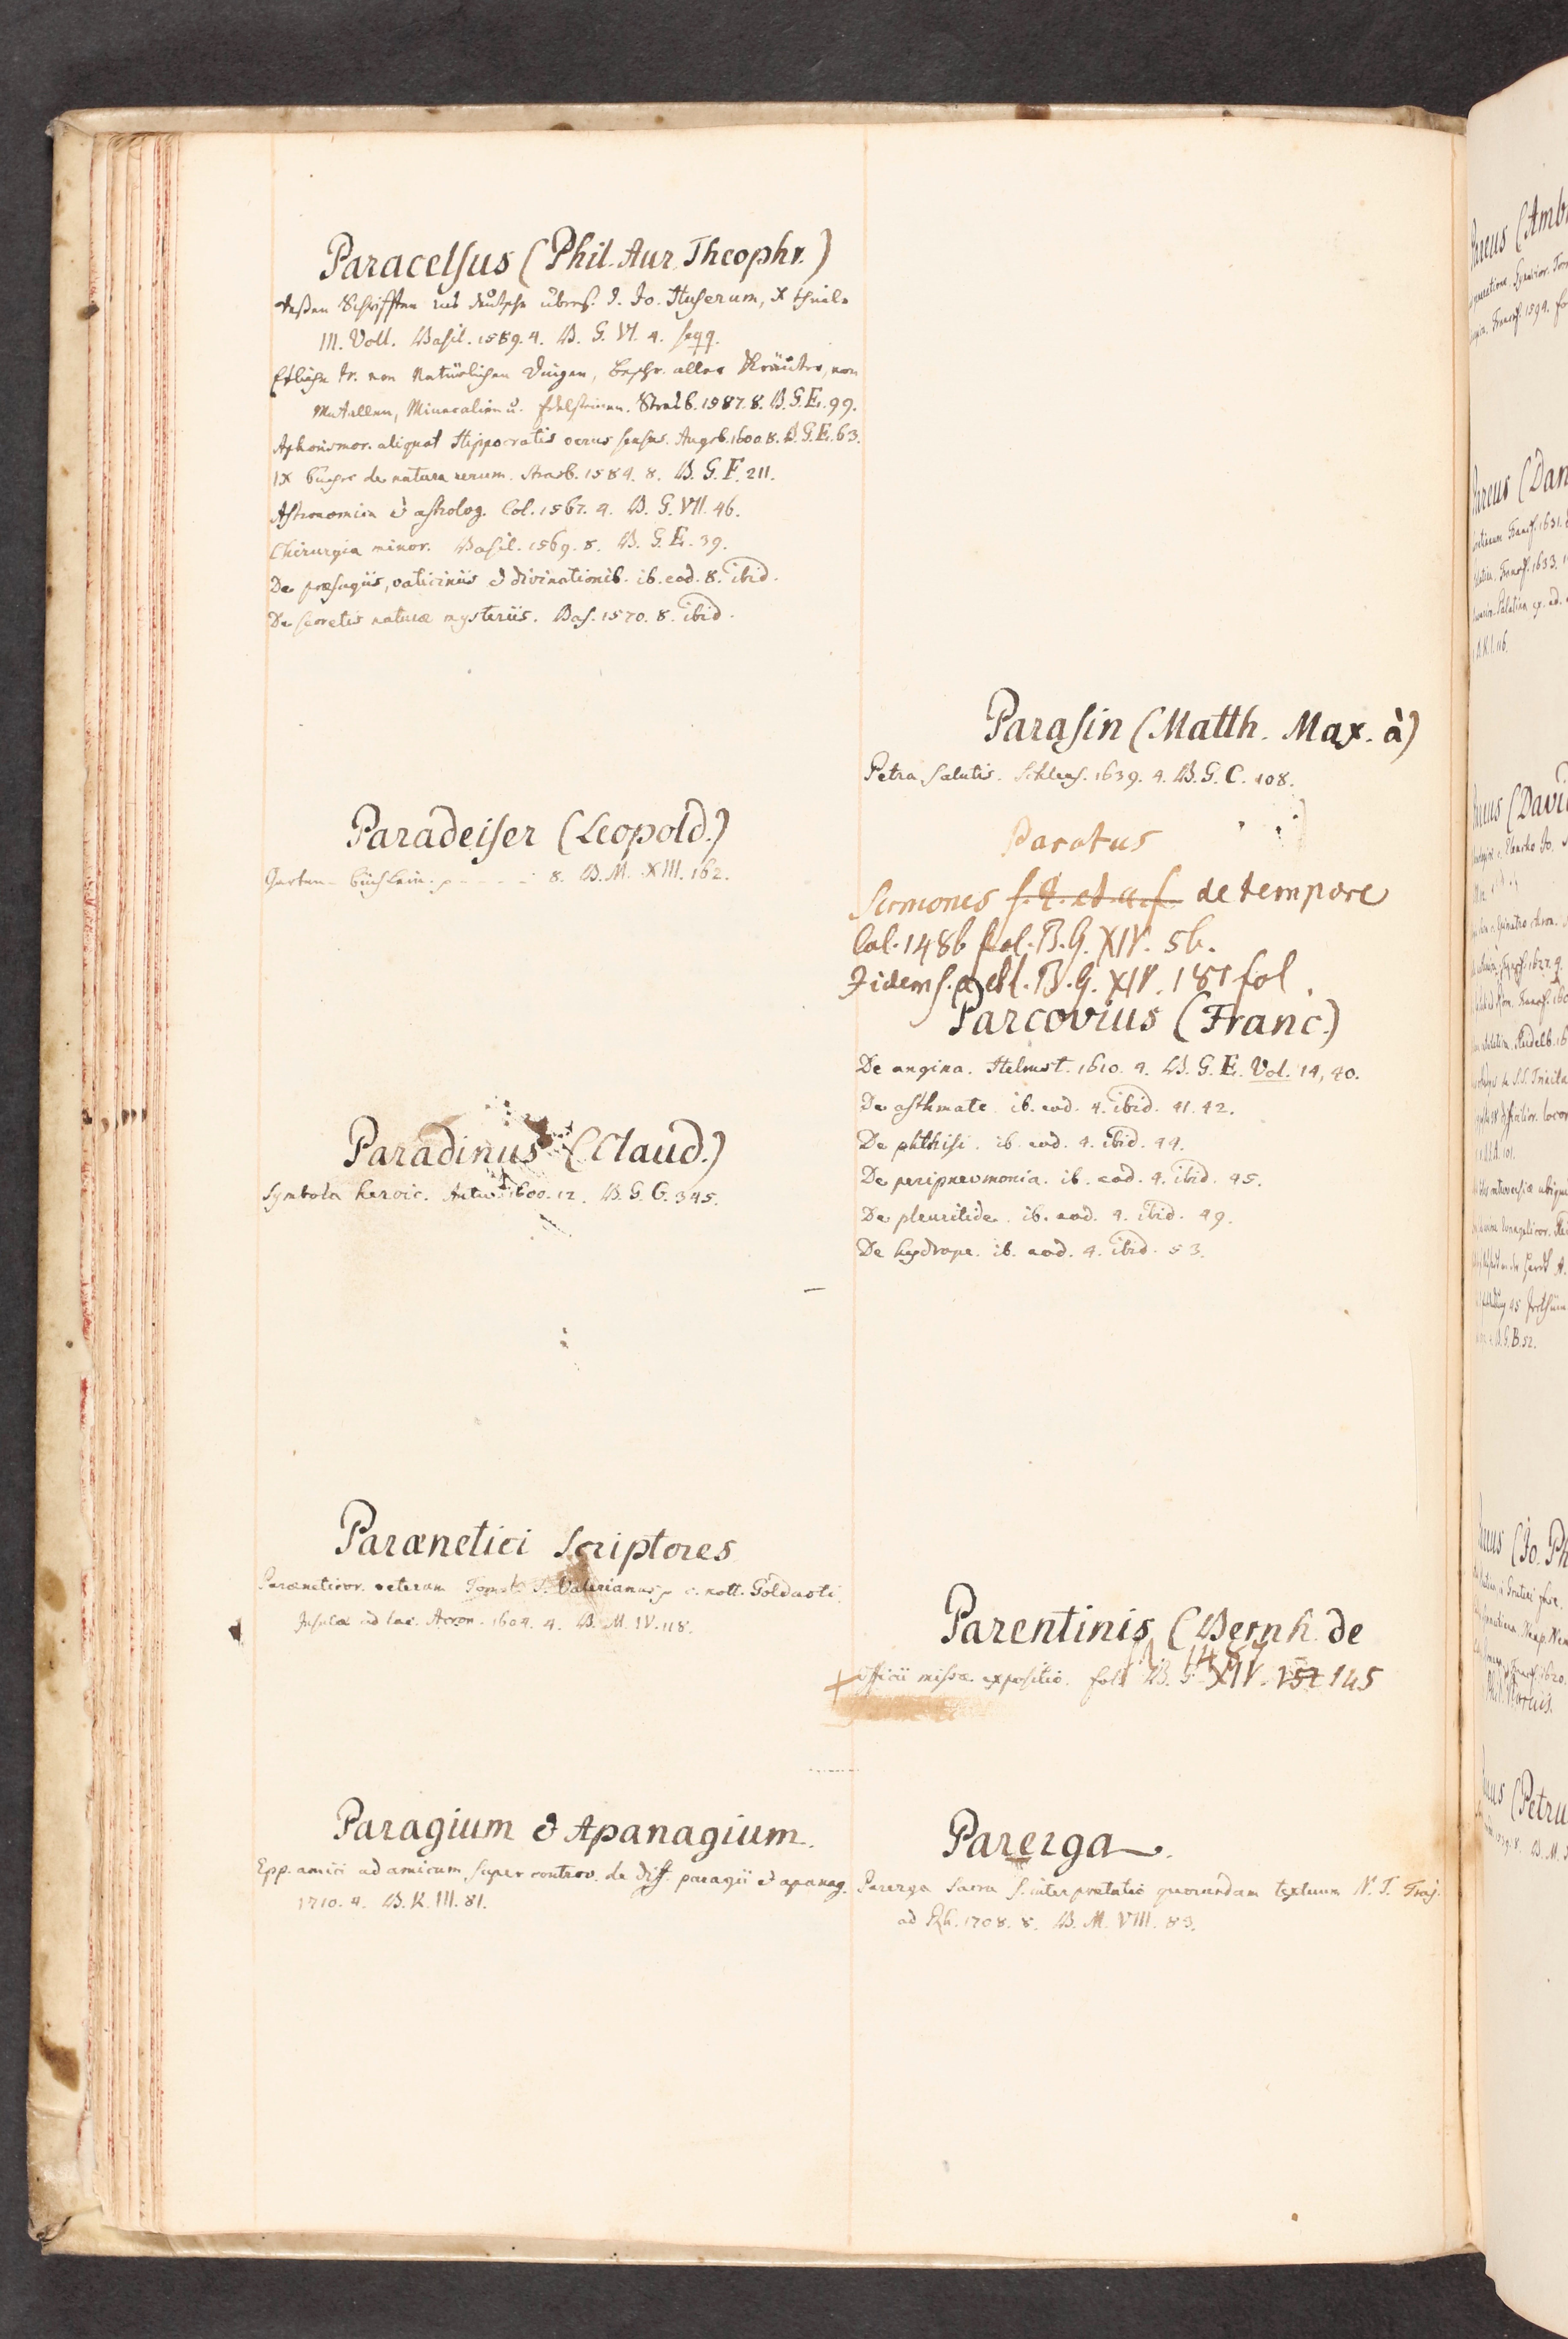 Paracelsus (Phil. Aur. Theophr.)
deßen Schrifften ins deutsche übers. d. Jo. Huserum, X theile
III. Voll. Basil. 1589. 4. B. G. VI. 4. seqq.
Etliche tr. von Natürlichen Dingen, Beschr. aller Kräuter, von
Metallen, Mineralien u. Edelsteinen. Strasb. 1587. 8. B. G. E. 99.
Aphorismor. aliquot Hippocratis verus sensus. Augsb. 1600. 8. B. G. E. 63.
IX Bücher de natura rerum. Strasb. 1584. 8. B. G. F. 211.
Astronomica & astrolog. Col. 1567. 4. B. G. VII. 46.
Chirurgia minor. Basil. 1569. 8. B. G. E. 39.
De præsagiis, vaticiniis & divinationib. ib. eod. 8. ibid.
De secretis naturæ mysteriis. Bas. 1570. 8. ibid.
Paradeiser (Leopold.)
Garten-Büchlein. 8. B. M. XIII. 162.
Paradinus (Claud.)
Symbola heroic. Antw. 1600. 12. B. G. G. 345.
Parænetici Scriptores
Paræneticor. veterum Tom. I. S. Valerianus c. nott. Goldasti.
Insulæ ad lac. Acron. 1604. 4. B. M. IV. 118.
Paragium & Apanagium.
Epp. amici ad amicum super controv. de diff. paragii & apanag.
1710. 4. B. K. III. 81.
Parasin (Matth. Max. à)
Petra Salutis. Schleus. 1639. 4. B. G. C. 108.
Paratus
Sermones s. l. et a. f. de tempore
Col. 1486 fol. B. G. XIV. 56.
Iidem s. a. et l. B. G. XIV. 181 fol.
Parcovius (Franc.)
De angina. Helmst. 1610. 4. B. G. E. Vol. 14, 40.
De asthmate. ib. eod. 4. ibid. 41. 42.
De phthisi. ib. eod. 4. ibid. 44.
De peripneumonia. ib. eod. 4. ibid. 45.
De pleuritide. ib. eod. 4. ibid. 49.
De hydrope. ib. eod. 4. ibid. 53.
Parentinis (Bernh. de
1487
Officii missæ expositio. fol. B. G. XIV. 152 145
Parerga.
Parerga Sacra s. interpretatio quorundam textuum N. T. Traj.
ad Rh. 1708. 8. B. M. VIII. 83.